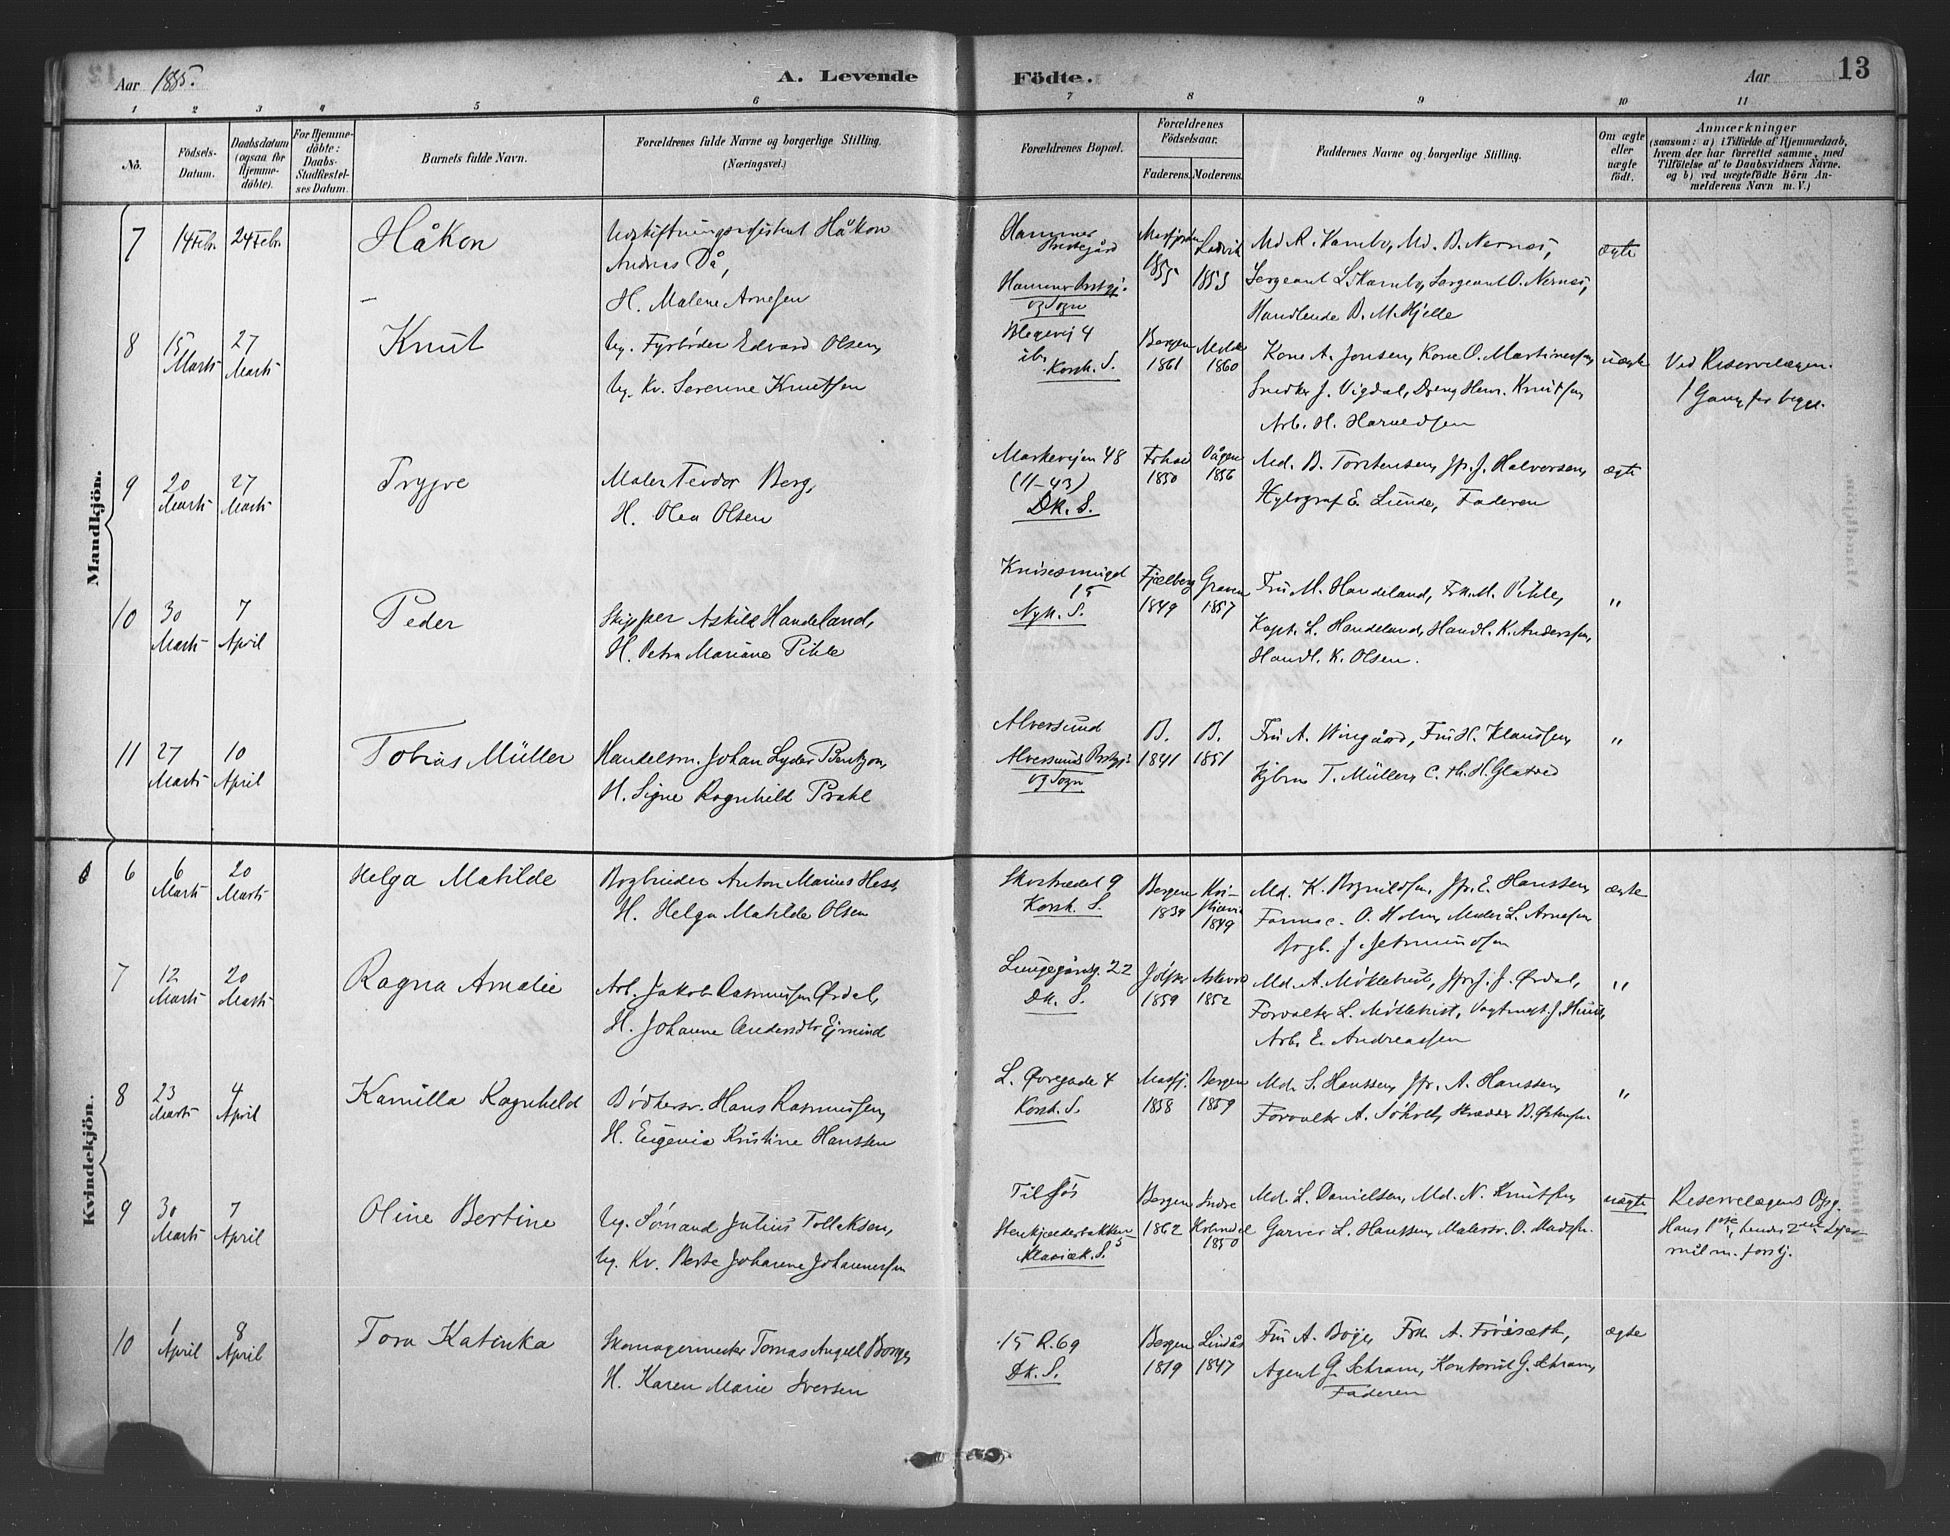 Aar 1885.
A. Levende
Födte.
Aar
13
1 2 3 4 5 6 7 8 9 10 11
No.
Födsels-
Datum.
Daabsdatum
(ogsaa for
Hjemme-
döbte).
For Hjemme-
döbte:
Daabs-
Stadfæstel-
ses Datum.
Barnets fulde Navn.
Forældrenes fulde Navne og borgerlige Stilling.
(Næringsvei.)
Forældrenes Bopæl.
Forældrenes
Födselsaar.
Faderens. Moderens.
Faddernes Navne og borgerlige Stilling.
Om ægte
eller
uægte
födt.
Anmærkninger
(saasom: a) i Tilfælde af Hjemmedaab,
hvem der har forrettet samme, med
Tilföielse af to Daabsvidners Navne.
og b) ved uægtefödte Börn An-
melderens Navn m. V.)
Mandkjön.
7 14 Febr. 24 Febr. Håkon
Udskiftningsassistent Håkon
Andreas Då,
H. Malene Arnesen
Hammer
Hammer Prstgj.
og Sogn
1855 1853
Md. R. Kamby, Md. B. Nernes,
Sergeant L. Kamby, Sergeant O. Nernes,
Handlende B. M. Hjelle
ægte
8 15 Marts 27 Marts Knut
Ug. Fyrbøder Edvard Olsen,
Ug. Kv. Serenine Knutsen
Blegevej 4
Korsk. S.
Bergen 1861 Molde 1860
Kone A. Jonsen, Kone O. Martinessen,
Snedker J. Vigdal, Dreng Henr. Knutsen,
Arb. H. Harveldsen
uægte
Ved Reservelægen.
1 Gang for begge.
9 20 Marts 27 Marts Trygve
Maler Teodor Berg,
H. Olea Olsen
Markevejen 48
(11-43)
Dk. S.
1850 Vågen 1856
Md. B. Torstensen, Jfr. J. Halvorsen,
Xylograf E. Lunde, Faderen
ægte
10 30 Marts 7 April Peder
Skipper Askild Handeland,
H. Petra Mariane Pihle
Knøsesmuget
15
Nyk. S.
Fjelberg 1849 Graven 1857
Fru M. Handeland, Frk. M. Pihle,
Kapt. L. Handeland, Handl. K. Anderssen,
Handl. K. Olsen.
"
11 27 Marts 10 April Tobias Müller
Handelsm. Johan Lyder Bentzon,
H. Signe Ragnhild Prahl
Alversund
Alversunds Prstgj.
og Sogn
B. 1841 B. 1851
Fru A. Wingård, Fru H. Klausen,
Kjbm. T. Müller, C. Th. H. Glatved
"
Kvindekjön.
6 6 Marts 20 Marts Helga Matilde
Bogbinder Anton Marius Hess,
H. Helga Matilde Olsen
Skostrædet 9
Korsk. S.
Bergen 1839 Kri-
stiania
1849
Md. K. Bognildsen, Jfr. E. Hanssen,
Farmac. O. Holm, Maler L. Arnesen
Bogb. J. Jetmundsen
ægte
7 12 Marts 20 Marts Ragna Amalie
Arb. Jakob Rasmussen Ørdal,
H. Johanne Andersdtr Ejmind
Lungegårdsg. 22
Dk. S.
Jølster 1859 Askvold 1852
Md. A. Møklebust, Jfr. J. Ørdal,
Forvalter L. Møklebust, Vagtmgt. J. Huus,
Arb. E. Andreassen
"
8 23 Marts 4 April Kamilla Ragnhild
Bødkersv. Hans Rasmussen,
H. Eugenia Kristine Hanssen
L. Øvregade 4
Korsk. S.
Masfj. 1858 Bergen 1859
Md. S. Hanssen, Jfr. A. Hanssen,
Forvalter A. Søhvel, Skrædder B. Østensen
"
9 30 Marts 7 April Oline Bertine
Ug. Sømand Julius Tolleksen,
Ug. Kv. Berte Johanne Johannessen
Til søs
Stenkjelderbakken
5
Klasiæk. S.
Bergen 1862 Indre
Holmedal
1850
Md. L. Danielsen, Md. N. Knutsen,
Garver L. Hanssen, Malersv. O. Madsen.
uægte
Reservelægens Opg.
Hans 1ste, hendes 2det Lejer-
mål m. forskj.
10 1 April 8 April Tora Katinka
Skomagermester Tomas Angell Borge,
H. Karen Marie Iversen
15 R. 69
Dk. S.
Bergen 1819 Lindås 1847
Fru A. Boije, Frk. A. Frøisæth,
Agent G. Schram, Kontorist G. Schram,
Faderen
ægte